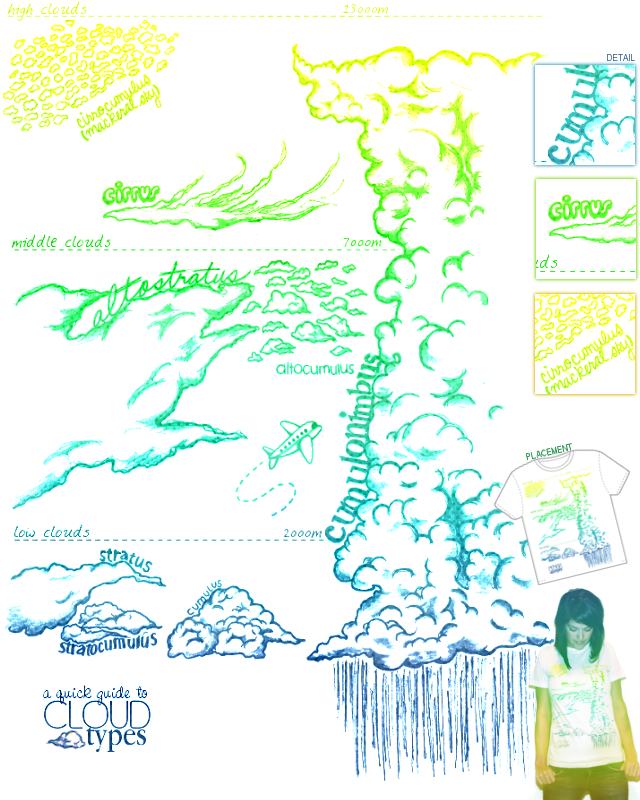 high clouds 13000m
cirrocumulus
(mackeral sky)
cirrus
middle clouds 7000m
altostratus
altocumulus
cumulonimbus
low clouds 2000m
stratus
cumulus
stratocumulus
a quick guide to
CLOUD
types
DETAIL
cumulo
cirrus
uds
cirrocumulus
(mackeral sky)
PLACEMENT